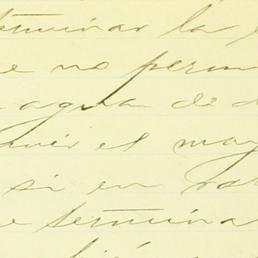 terminar la
e no perm
agua de d
uir el may
si en
e termina